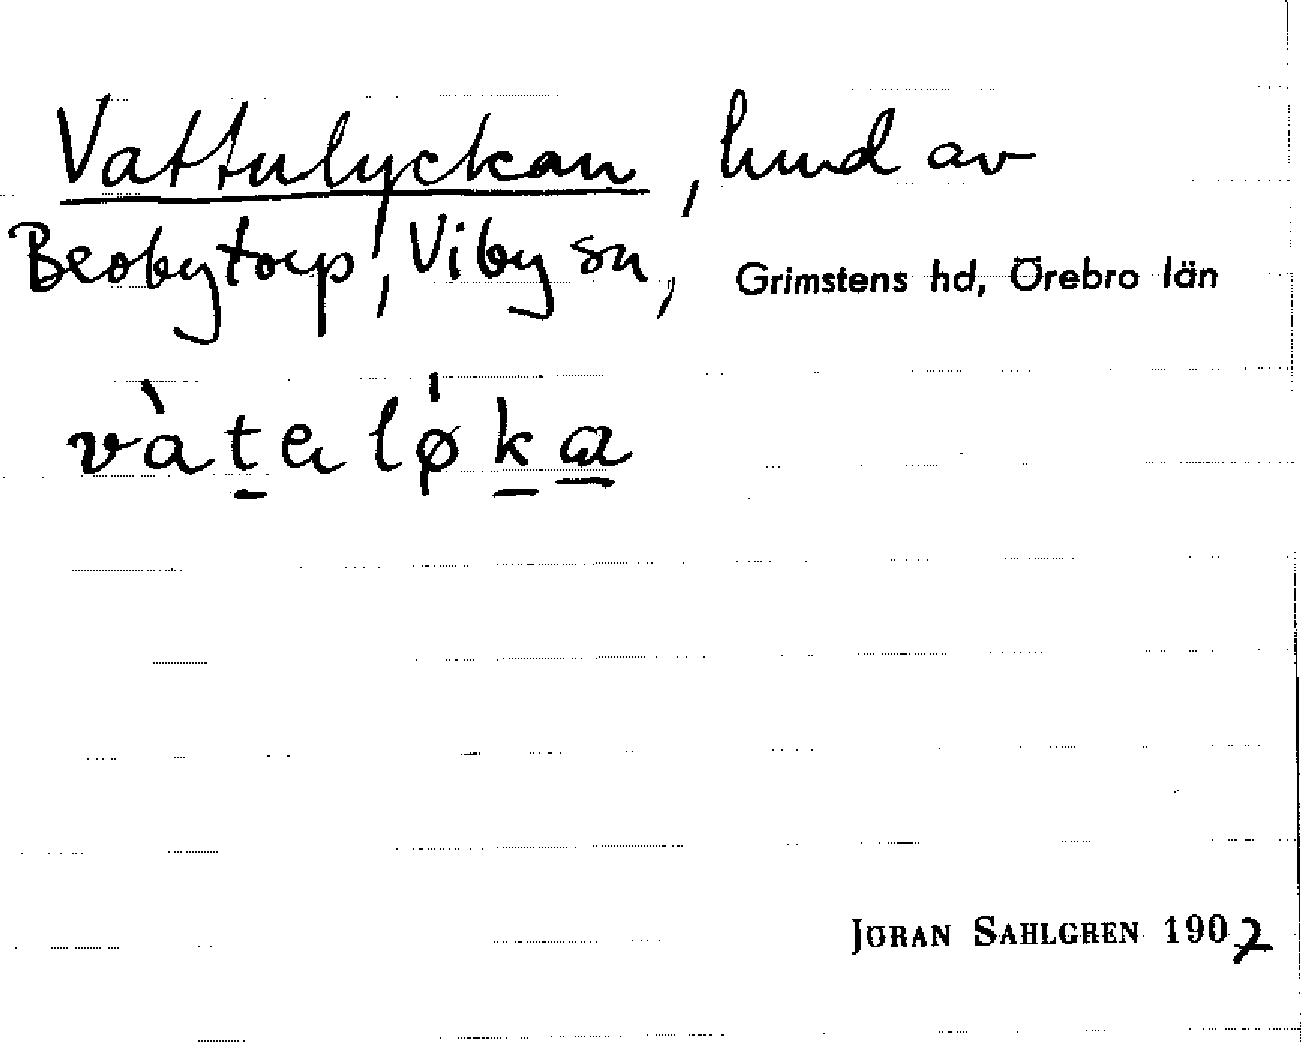 Vattulyckan, lund av
Beobytorp, Viby sn, Grimstens hd, Örebro län
JÖRAN SAHLGREN 1907